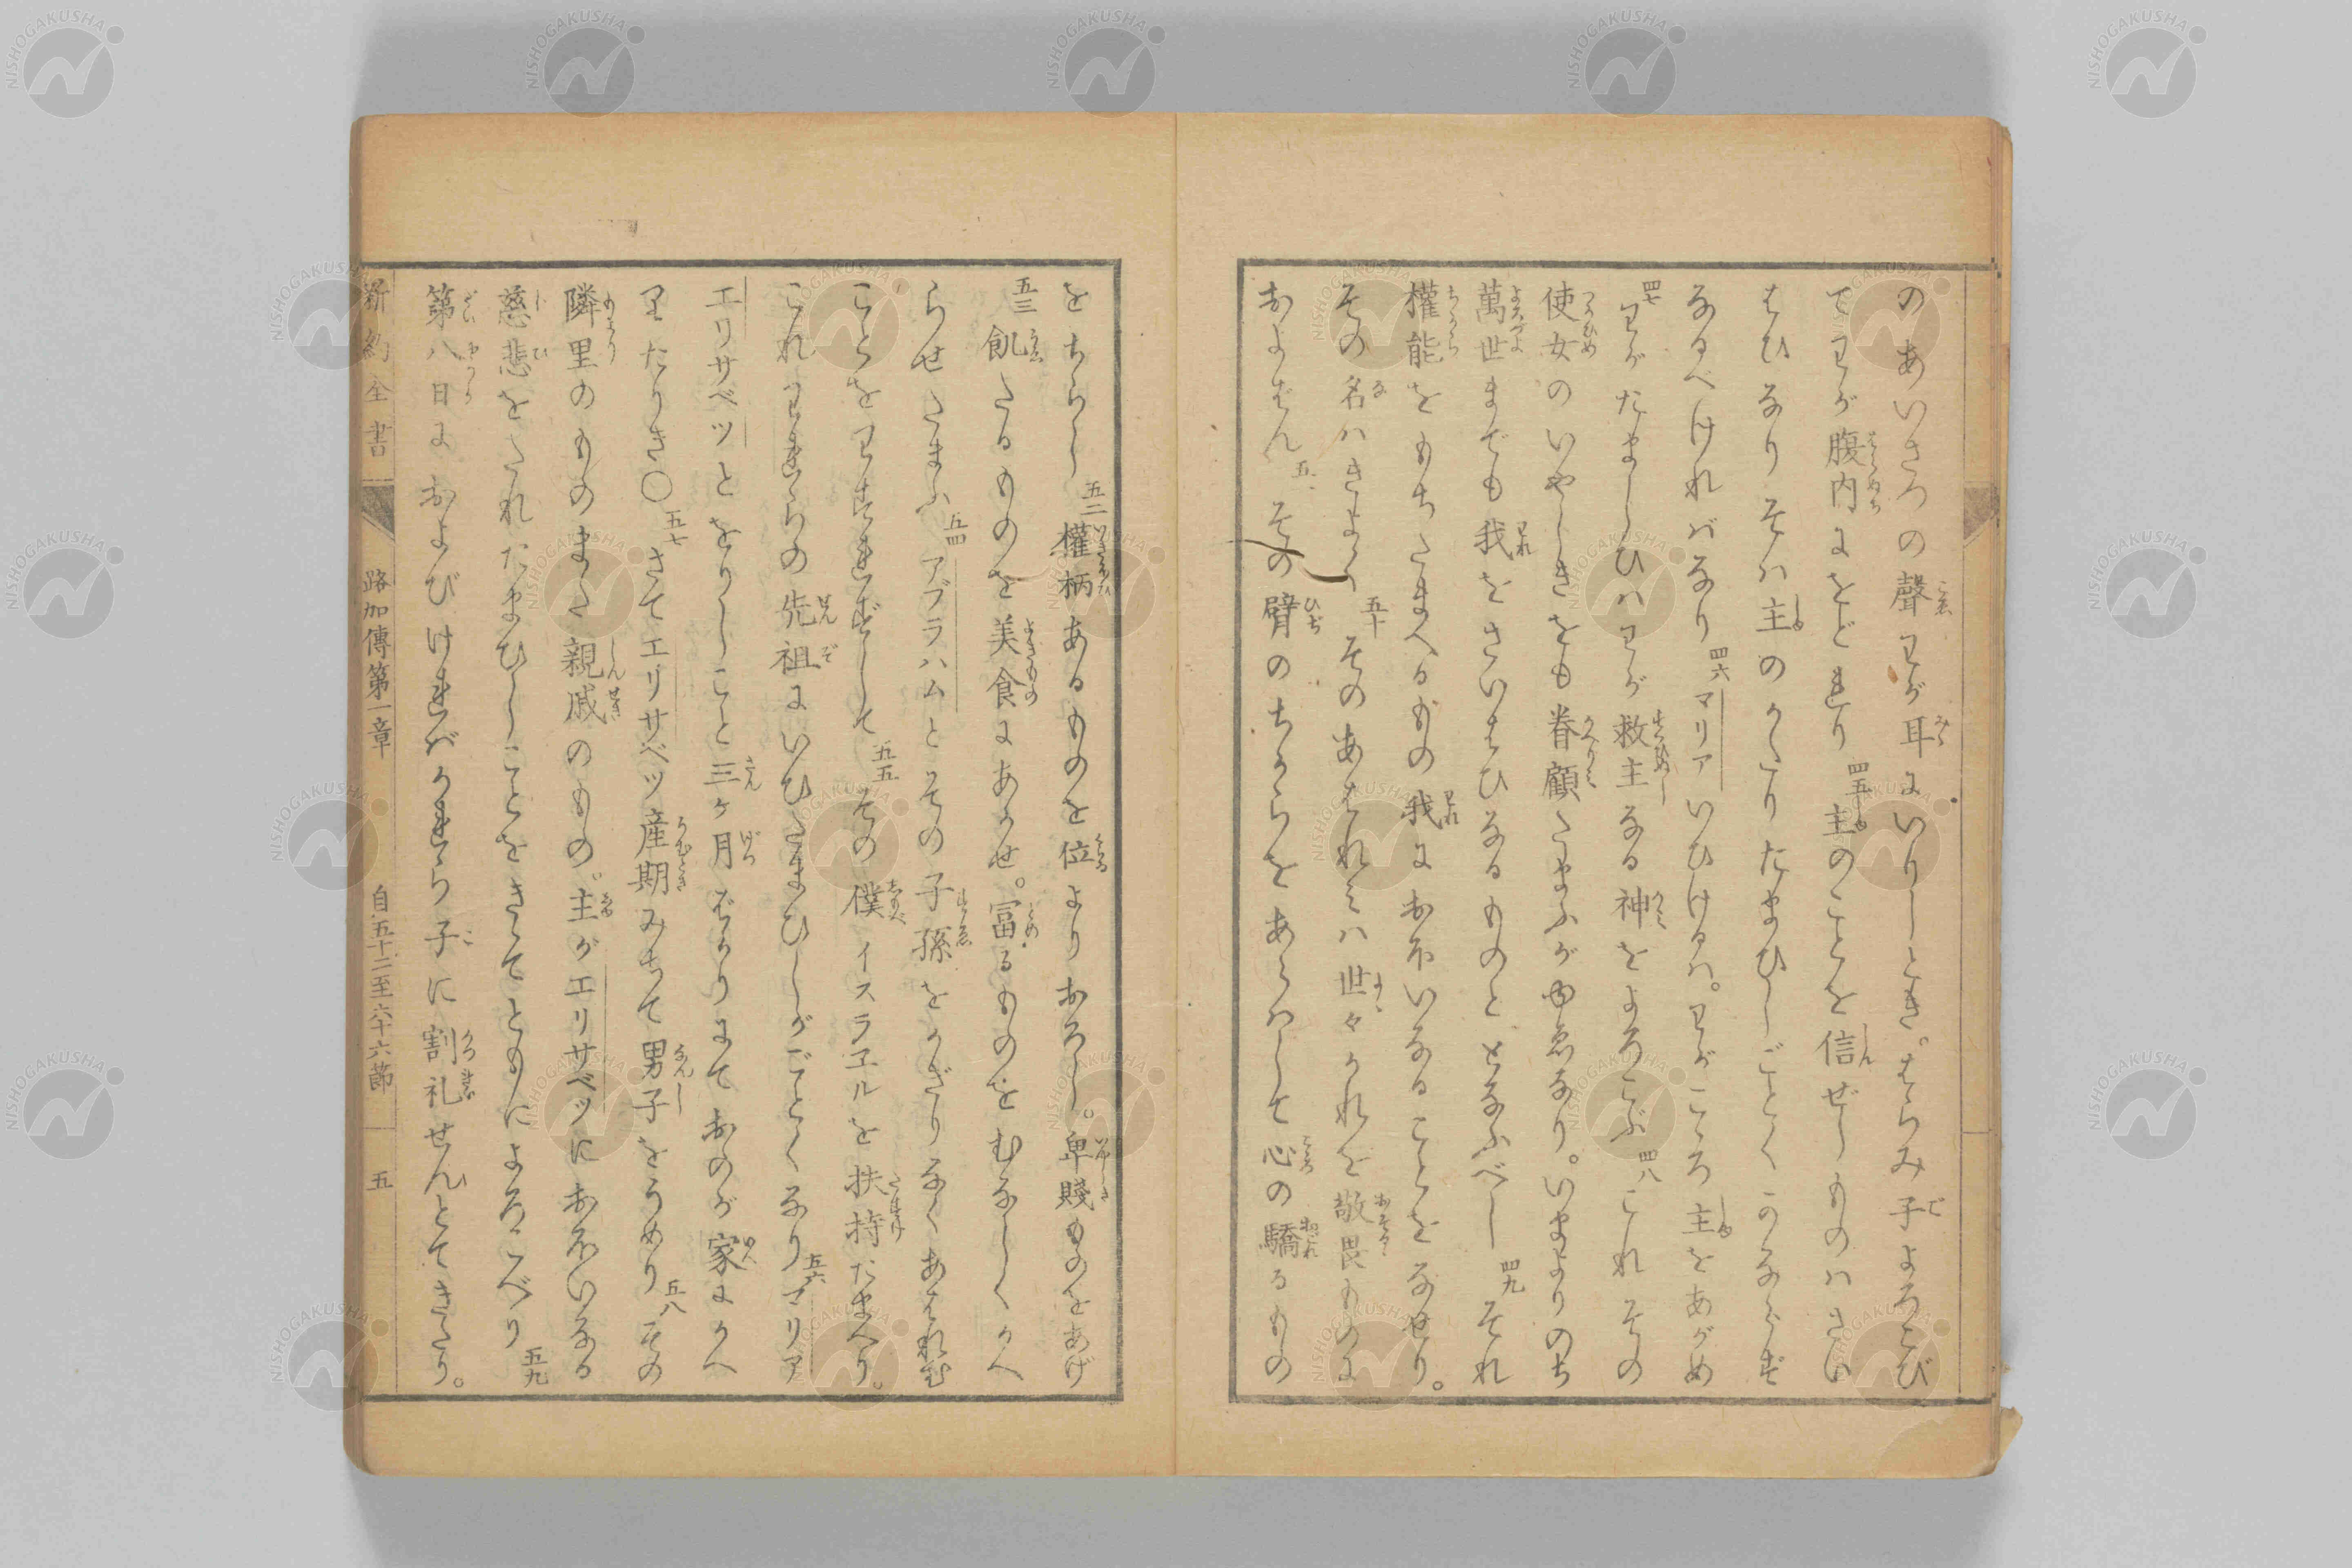 のあいさつの聲わが耳にいりしとき。はらみ子よろこび
てわが腹内にをどれり 四五 主のことを信ぜしものハさい
はひなりそハ主のかたりたまひしごとくかならず
なるべけれバなり 四六 マリアいひけるハ。わがこゝろ主をあがめ
四七 わがたましひハわが救主なる神をよろこぶ 四八 これその
使女のいやしきをも眷顧たまふがゆゑなり。いまよりのち
萬世までも我をさいはひなるものととなふべし 四九 それ
權能をもちたまへるもの我におほいなることをなせり。
その名ハきよく 五十 そのあはれミハ世々かれを敬畏ものに
およばん 五一 その臂のちからをあらハして心の驕るもの
をちらし 五二 權柄あるものを位よりおろし。卑賤ものをあげ
五三 飢たるものを美食にあかせ。富るものをむなしくかへ
らせたまふ 五四 アブラハムとその子孫をかぎりなくあはれむ
ことをわすれずして 五五 その僕イスラエルを扶持たまへり。
これわれらの先祖にいひたまひしがごとくなり 五六 マリア
エリサベツとをりしこと三ヶ月ばかりにておのが家にかへ
りたりき〇 五七 さてエリサベツ産期みちて男子をうめり 五八 その
隣里のものまた親戚のもの。主がエリサベツにおほいなる
慈悲をたれたまひしことをきゝてともによろこべり 五九
第八日におよびけれバかれら子に割礼せんとてきたり。
新約全書 路加傳第一章 自五十二至六十六節 五
NISHOGAKUSHA